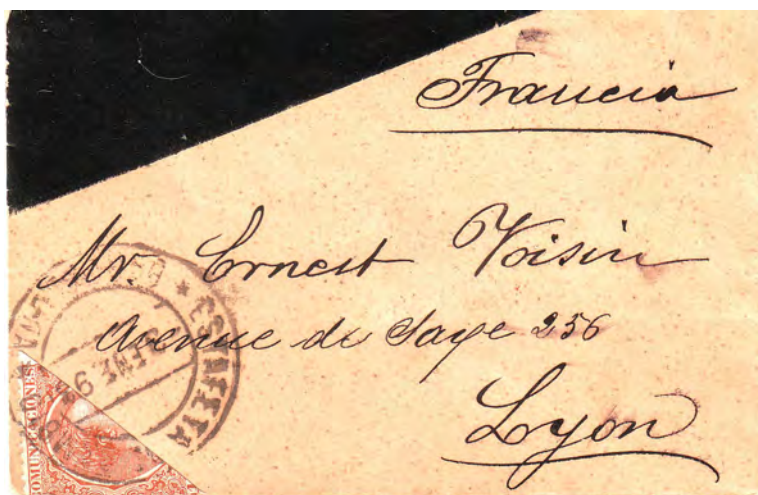 Francia
Mr. Ernest Voisin
Avenue de Saxe 256
Lyon
ESTAFETA
ENE 9
COMUNICACIONES